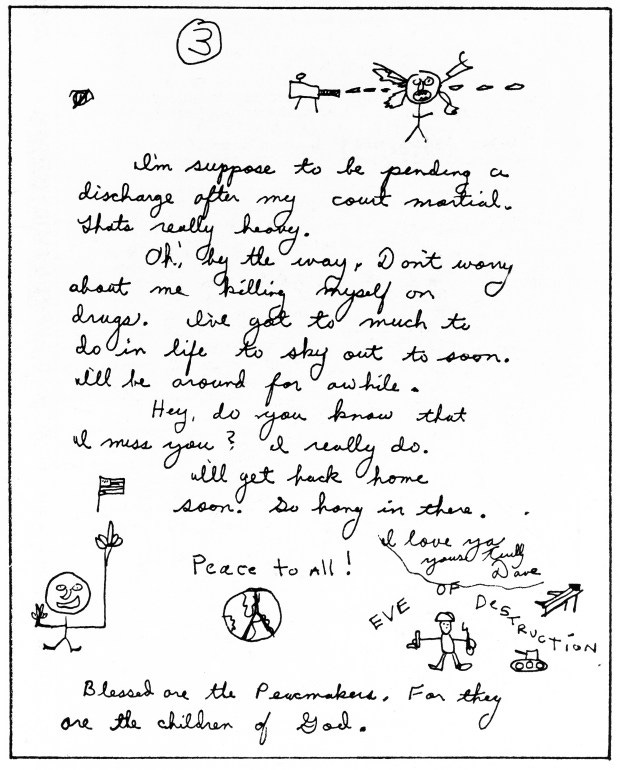 3
I'm suppose to be pending a
discharge after my court martial.
Thats really heavy.
Oh, by the way, Don't worry
about me killing myself on
drugs. I've got to much to
do in life to sky out to soon.
I'll be around for awhile.
Hey, do you know that
I miss you? I really do.
I'll get back home
soon. So hang in there.
I love ya
yours truly
Dave
Peace to All!
EVE OF DESTRUCTION
Blessed are the Peacmakers. For they
are the children of God.